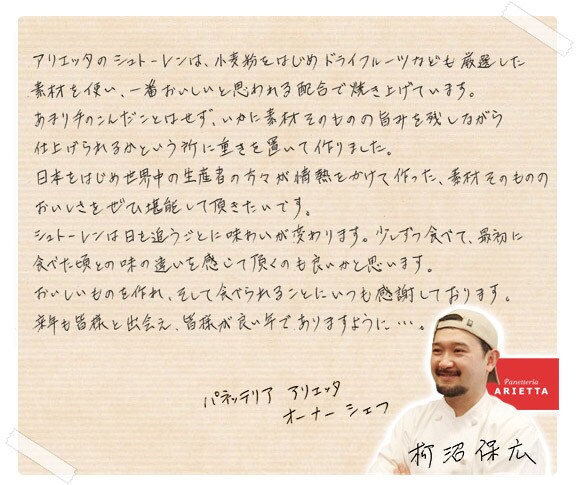 アリエッタのシュトーレンは、小麦粉をはじめドライフルーツなども厳選した
素材を使い、一番おいしいと思われる配合で焼き上げています。
あまり手のこんだことはせず、いかに素材そのものの旨みを残しながら
仕上げられるかという所に重きを置いて作りました。
日本をはじめ世界中の生産者の方々が情熱をかけて作った、素材そのものの
おいしさをぜひ堪能して頂きたいです。
シュトーレンは日を追うごとに味わいが変わります。少しずつ食べて、最初に
食べた頃との味の違いを感じて頂くのも良いかと思います。
おいしいものを作れ、そして食べられることにいつも感謝しております。
来年も皆様と出会え、皆様が良い年でありますように…。
パネッテリア アリエッタ
オーナーシェフ
Panetteria
ARIETTA
柳沼保広